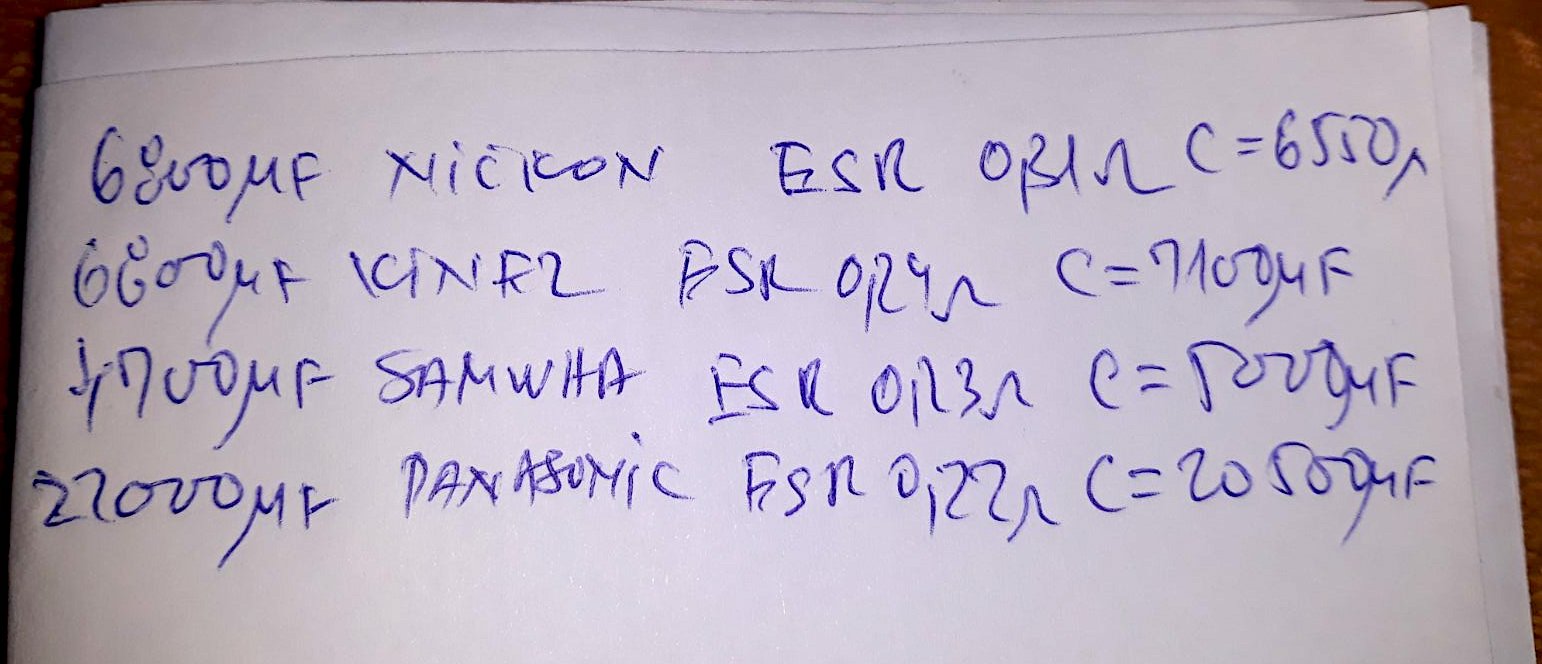 6800μF NICIKON ESR 0,31Ω C=6550μ
6800μF KINFZ ESR 0,24Ω C=7100μF
4700μF SAMWHA ESR 0,23Ω C=5000μF
22000μF PANASONIC ESR 0,22Ω C=20500μF